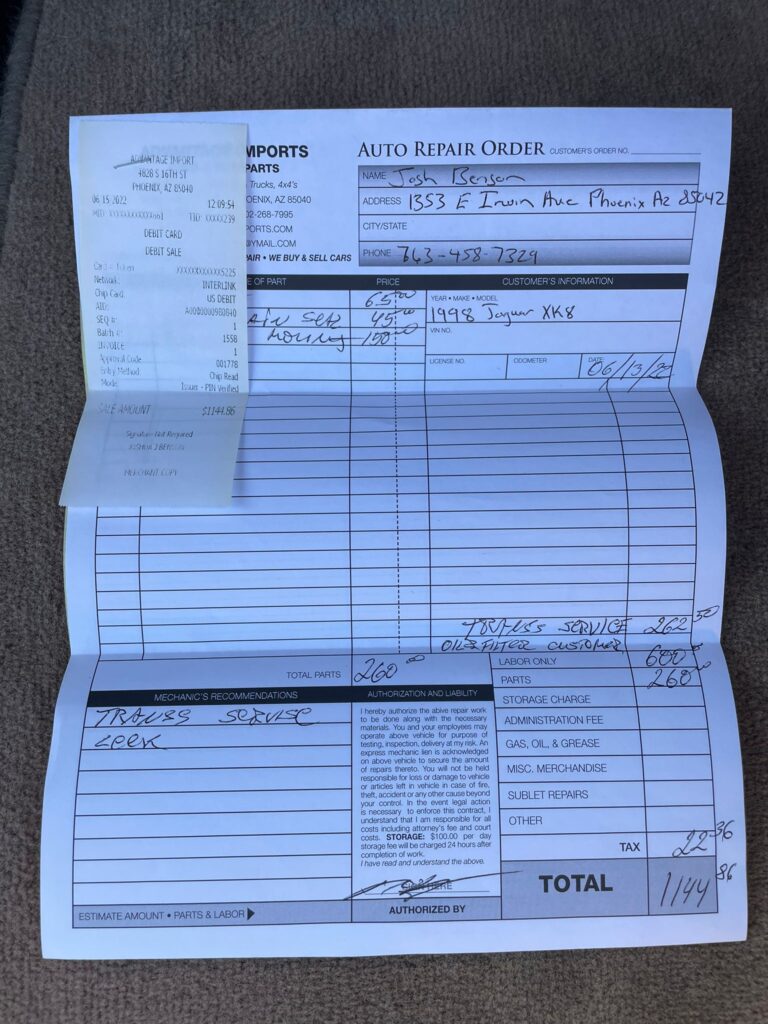 ADVANTAGE IMPORT
4828 S 16TH ST
PHOENIX, AZ 85040
06 15 2022 12:09:54
MID: XXXXXXXXXXXX661 TID: XXXXX239
DEBIT CARD
DEBIT SALE
Card # Token XXXXXXXXXXXX5225
Network: INTERLINK
Chip Card: US DEBIT
AID: A0000000980840
SEQ #: 1
Batch #: 1558
INVOICE 1
Approval Code 001778
Entry Method Chip Read
Mode: Issuer - PIN Verified
SALE AMOUNT $1144.86
Signature Not Required
JOSHUA J BENSON
MERCHANT COPY
MPORTS
PARTS
Trucks, 4x4's
OENIX, AZ 85040
02-268-7995
PORTS.COM
@YMAIL.COM
AIR • WE BUY & SELL CARS
AUTO REPAIR ORDER CUSTOMER'S ORDER NO.
NAME Josh Benson
ADDRESS 1353 E Irwin Ave Phoenix Az 85042
CITY/STATE
PHONE 763-458-7329
E OF PART PRICE CUSTOMER'S INFORMATION
65 00
45 00
150 00
YEAR • MAKE • MODEL
1998 Jaguar XK8
VIN NO.
LICENSE NO. ODOMETER: DATE:
06/13/22
TRANSS SERVICE 262 50
OIL & FILTER CUSTOMER
TOTAL PARTS 260 00
LABOR ONLY 600 00
PARTS 260 00
STORAGE CHARGE
ADMINISTRATION FEE
GAS, OIL, & GREASE
MISC. MERCHANDISE
SUBLET REPAIRS
OTHER
TAX 22 36
TOTAL 1144 86
MECHANIC'S RECOMMENDATIONS
TRANSS SERVISE
LEEK
AUTHORIZATION AND LIABILITY
I hereby authorize the abive repair work
to be done along with the necessary
materials. You and your employees may
operate above vehicle for purpose of
testing, inspection, delivery at my risk. An
express mechanic lien is acknowledged
on above vehicle to secure the amount
of repairs thereto. You will not be held
responsible for loss or damage to vehicle
or articles left in vehicle in case of fire,
theft, accident or any other cause beyond
your control. In the event legal action
is necessary to enforce this contract, I
understand that I am responsible for all
costs including attorney's fee and court
costs. STORAGE: $100.00 per day
storage fee will be charged 24 hours after
completion of work.
I have read and understand the above.
SIGN HERE
AUTHORIZED BY
ESTIMATE AMOUNT • PARTS & LABOR